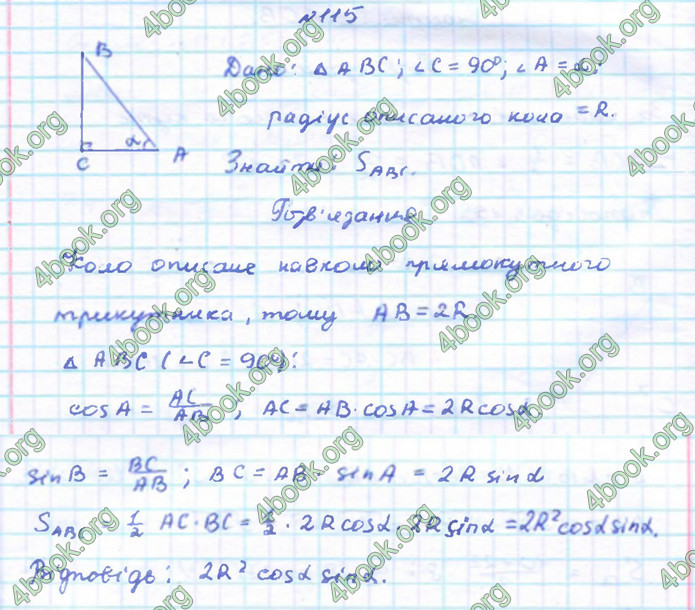 №115
B
C
α
A
Дано: △ABC; ∠C = 90°; ∠A = α;
радіус описаного кола = R.
Знайти: S_ABC.
Розв'язання
Коло описане навколо прямокутного
трикутника, тому AB = 2R
△ABC (∠C = 90°):
cosA = AC/AB, AC = AB·cosA = 2Rcosα.
sinB = BC/AB; BC = AB·sinA = 2R sinα
S_ABC = 1/2 AC·BC = 1/2 · 2Rcosα · 2Rsinα = 2R²cosαsinα.
Відповідь: 2R² cosα sinα.
4book.org